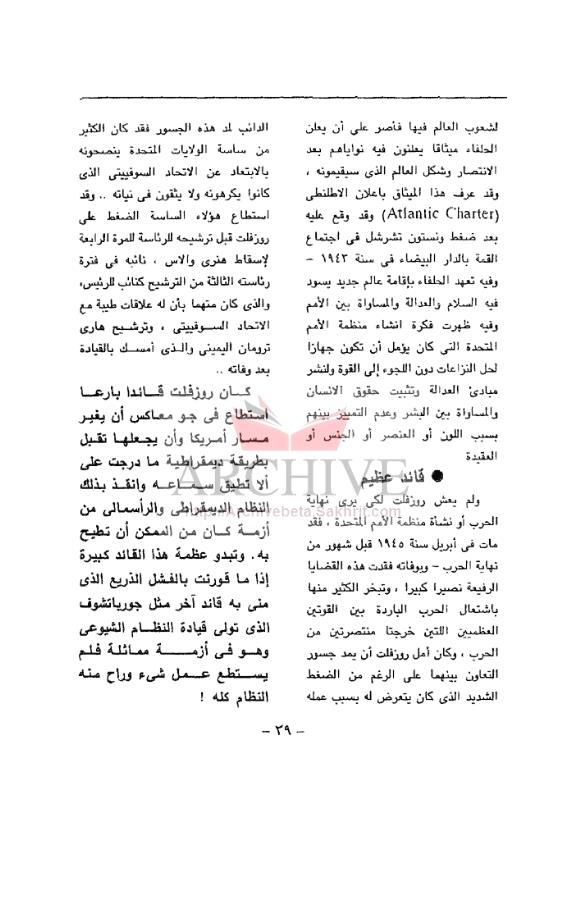 لشعوب العالم فيها فأصر على أن يعلن
الحلفاء ميثاقا يعلنون فيه نواياهم بعد
الانتصار وشكل العالم الذى سيقيمونه ،
وقد عرف هذا الميثاق باعلان الاطلنطى
(Atlantic Charter) وقد وقع عليه
بعد ضغط ونستون تشرشل فى اجتماع
القمة بالدار البيضاء فى سنة ١٩٤٣ –
وفيه تعهد الحلفاء بإقامة عالم جديد يسود
فيه السلام والعدالة والمساواة بين الأمم
وفيه ظهرت فكرة انشاء منظمة الأمم
المتحدة التى كان يؤمل أن تكون جهازا
لحل النزاعات دون اللجوء إلى القوة ولنشر
مبادئ العدالة وتثبيت حقوق الانسان
والمساواة بين البشر وعدم التمييز بينهم
بسبب اللون أو العنصر أو الجنس أو
العقيدة
● قائد عظيم
ولم يعش روزفلت لكى يرى نهاية
الحرب أو نشأة منظمة الأمم المتحدة ، فقد
مات فى أبريل سنة ١٩٤٥ قبل شهور من
نهاية الحرب – وبوفاته فقدت هذه القضايا
الرفيعة نصيرا كبيرا ، وتبخر الكثير منها
باشتعال الحرب الباردة بين القوتين
العظميين اللتين خرجتا منتصرتين من
الحرب ، وكان أمل روزفلت أن يمد جسور
التعاون بينهما على الرغم من الضغط
الشديد الذى كان يتعرض له بسبب عمله
الدائب لمد هذه الجسور فقد كان الكثير
من ساسة الولايات المتحدة ينصحونه
بالابتعاد عن الاتحاد السوفييتى الذى
كانوا يكرهونه ولا يثقون فى نياته .. وقد
استطاع هؤلاء الساسة الضغط على
روزفلت قبل ترشيحه للرئاسة للمرة الرابعة
لإسقاط هنرى والاس ، نائبه فى فترة
رئاسته الثالثة من الترشيح كنائب للرئيس،
والذى كان متهما بأن له علاقات طيبة مع
الاتحاد السوفييتى ، وترشيح هارى
ترومان اليمينى والذى أمسك بالقيادة
بعد وفاته ..
كان روزفلت قائدا بارعا
استطاع فى جو معاكس أن يغير
مسار أمريكا وأن يجعلها تقبل
بطريقة ديمقراطية ما درجت على
ألا تطيق سماعه وانقذ بذلك
النظام الديمقراطى والرأسمالى من
أزمة كان من الممكن أن تطيح
به. وتبدو عظمة هذا القائد كبيرة
إذا ما قورنت بالفشل الذريع الذى
منى به قائد آخر مثل جورباتشوف
الذى تولى قيادة النظام الشيوعى
وهو فى أزمة مماثلة فلم
يستطع عمل شىء وراح منه
النظام كله !
– ٢٩ –
ARCHIVE
http://Archivebeta.Sakhrit.com